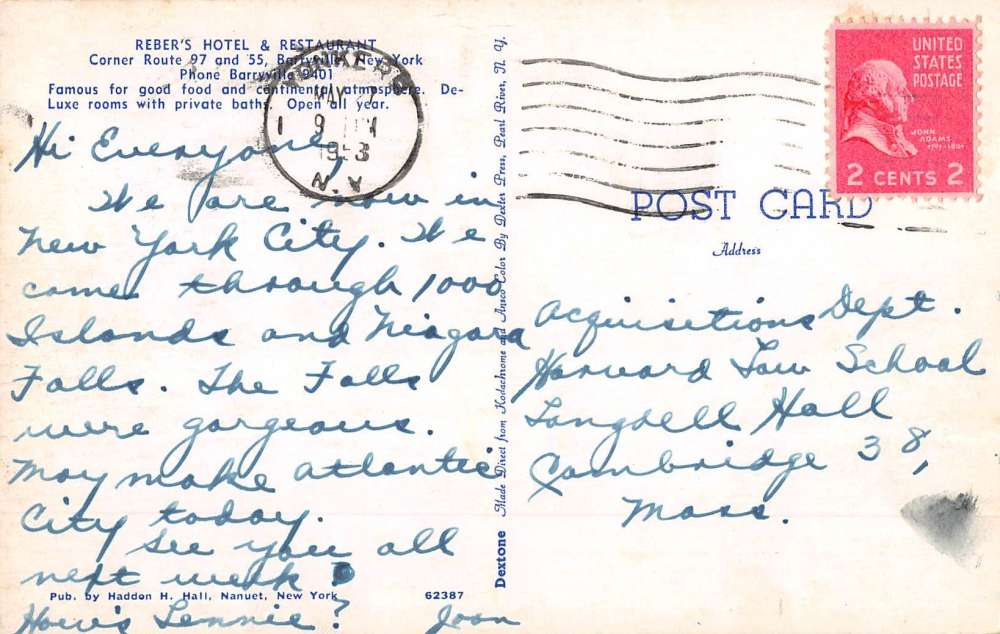 REBER'S HOTEL & RESTAURANT
Corner Route 97 and 55, Barryville, New York
Phone Barryville 2401
Famous for good food and continental atmosphere. De-
Luxe rooms with private baths. Open all year.
Hi Everyone,
We are now in
New York City. We
came through 1000
Islands and Niagara
Falls. The Falls
were gorgeous.
May make Atlantic
City today.
See you all
next week?
How's Lennie?
Joan
Pub. by Haddon H. Hall, Nanuet, New York
62387
Dextone Made Direct from Kodachrome and Ansco Color By Dexter Press, Pearl River, N. Y.
YONKERS
MAY
1953
N.Y.
UNITED
STATES
POSTAGE
JOHN
ADAMS
2 CENTS 2
POST CARD
Address
Acquisitions Dept.
Harvard Law School
Langdell Hall
Cambridge 38,
Mass.